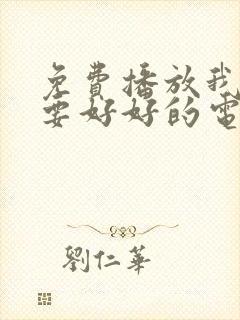 免費播放我
要好好的電
劉仁華